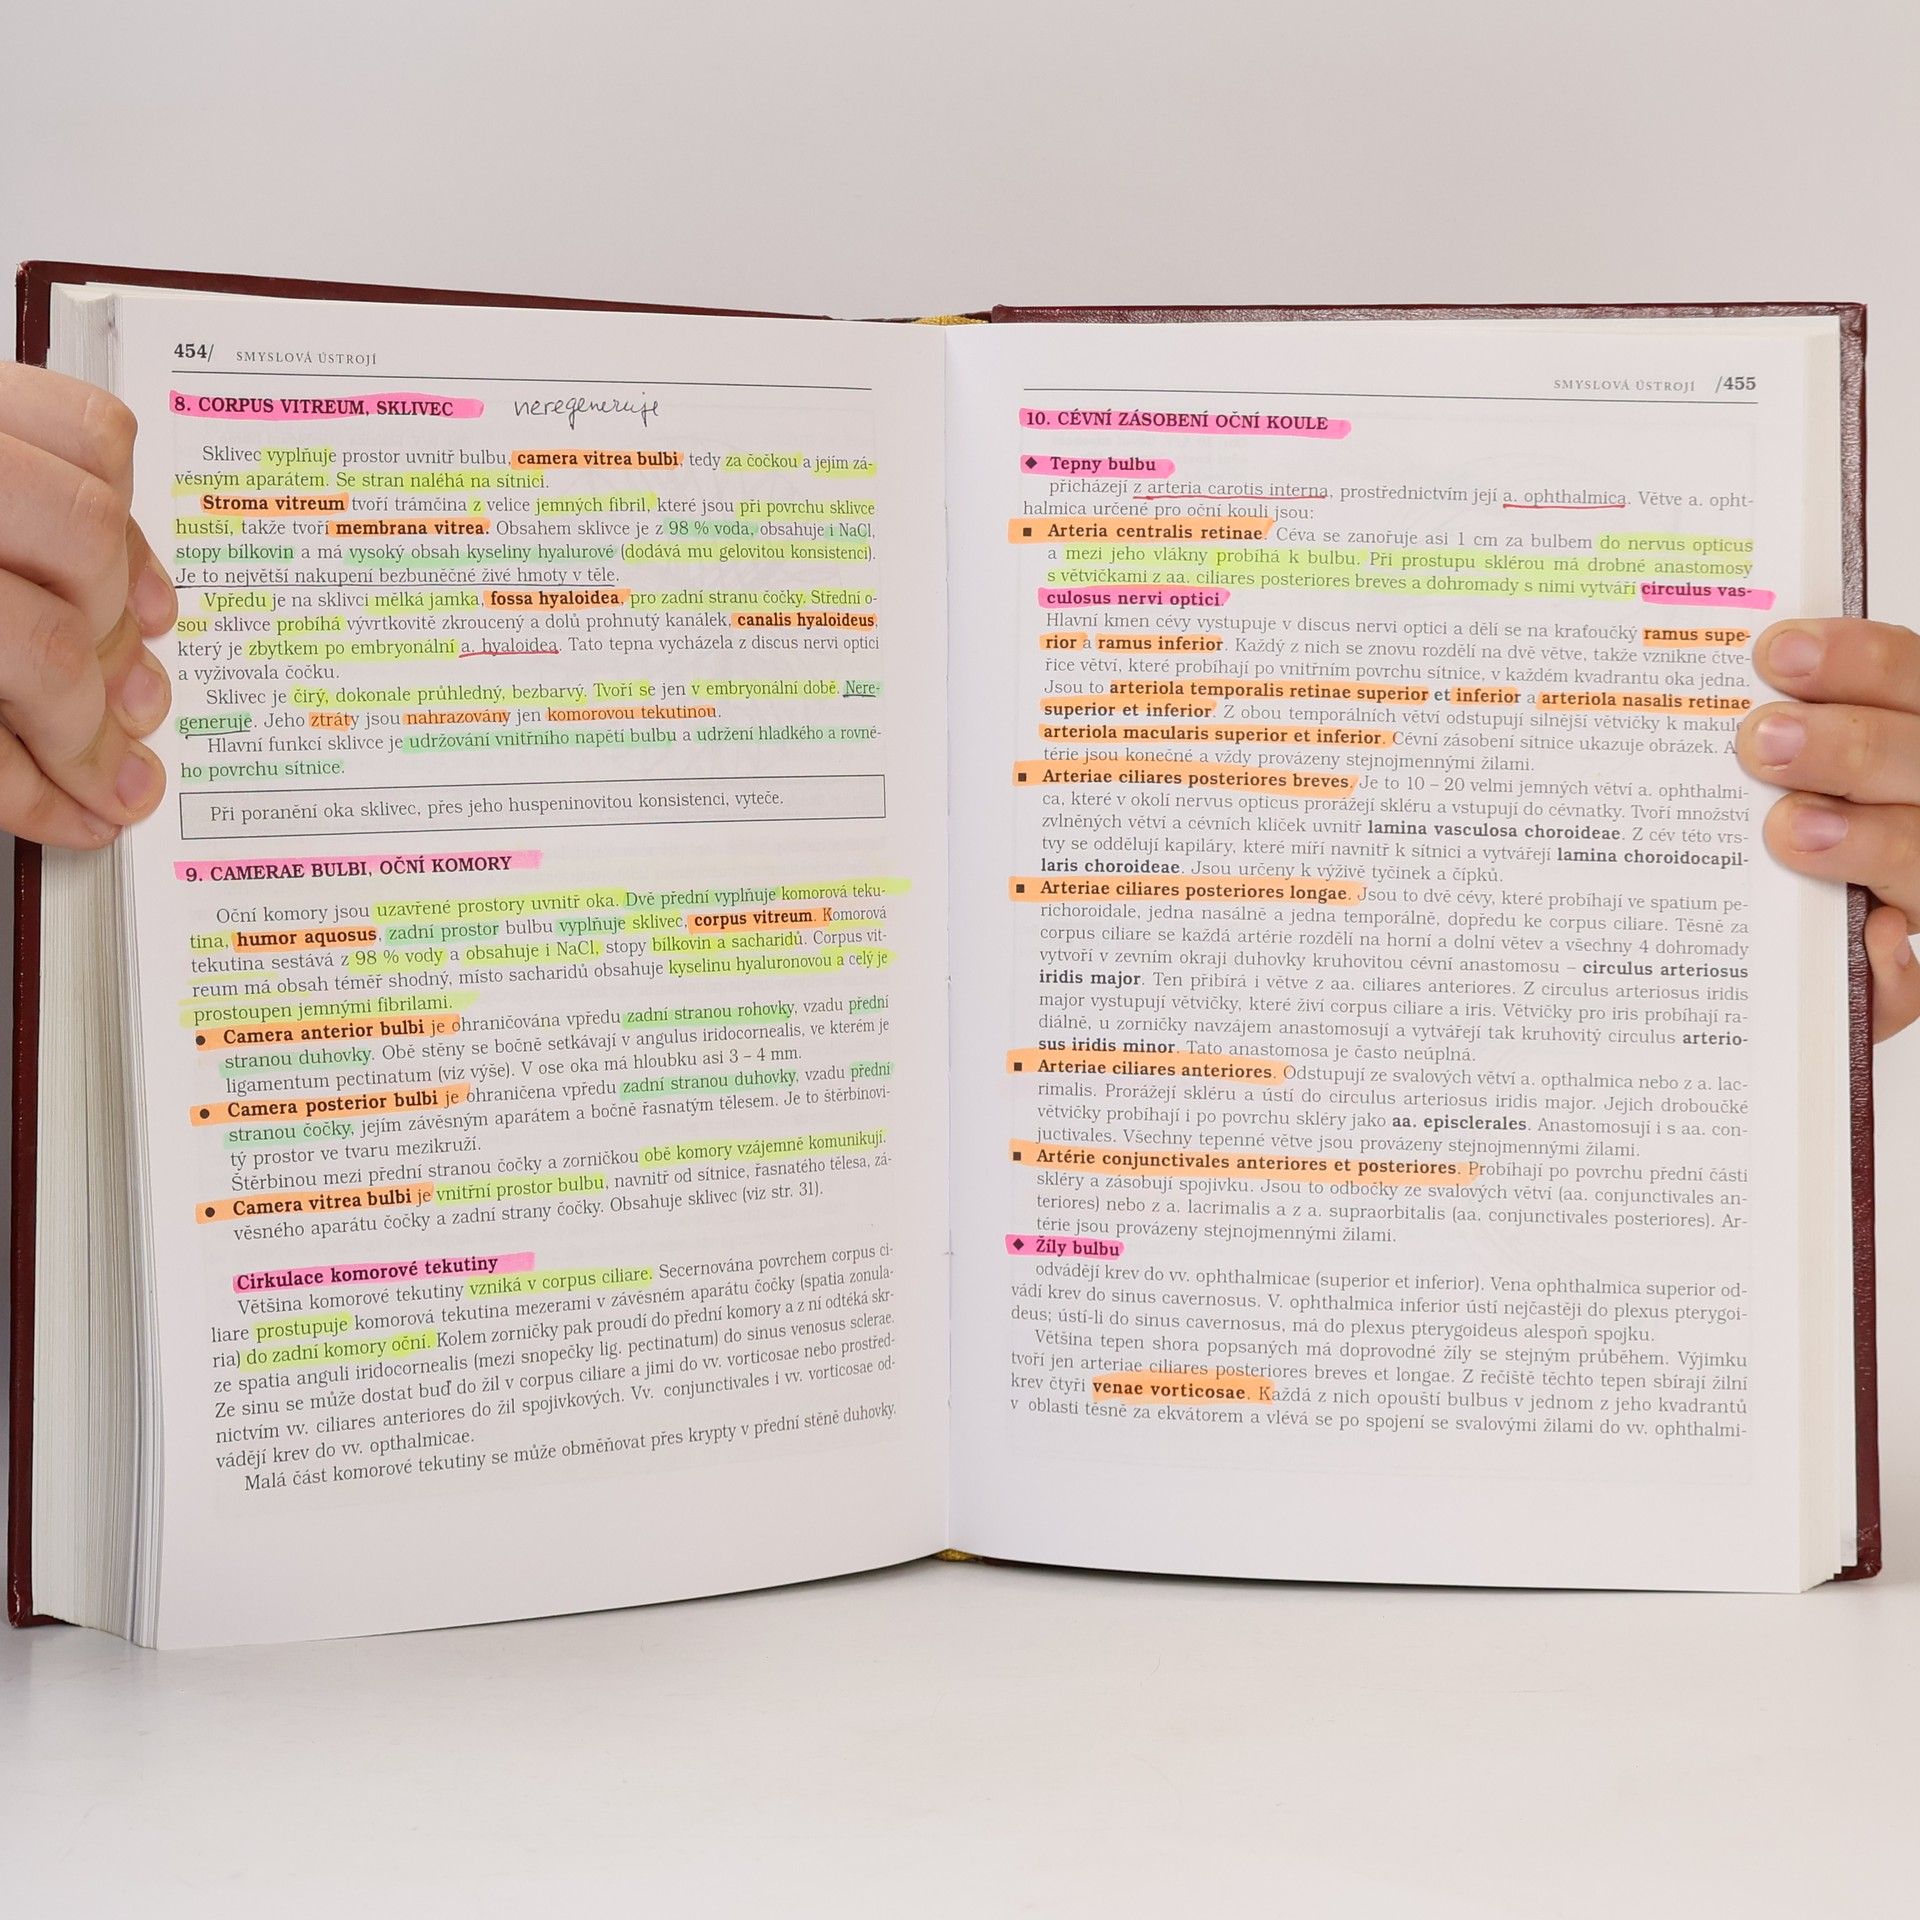 454/ SMYSLOVÁ ÚSTROJÍ
8. CORPUS VITREUM, SKLIVEC neregeneruje
Sklivec vyplňuje prostor uvnitř bulbu, camera vitrea bulbi, tedy za čočkou a jejím zá-
věsným aparátem. Se stran naléhá na sítnici.
Stroma vitreum tvoří trámčina z velice jemných fibril, které jsou při povrchu sklivce
hustší, takže tvoří membrana vitrea. Obsahem sklivce je z 98 % voda, obsahuje i NaCl,
stopy bílkovin a má vysoký obsah kyseliny hyalurové (dodává mu gelovitou konsistenci).
Je to největší nakupení bezbuněčné živé hmoty v těle.
Vpředu je na sklivci mělká jamka, fossa hyaloidea, pro zadní stranu čočky. Střední o-
sou sklivce probíhá vývrtkovitě zkroucený a dolů prohnutý kanálek, canalis hyaloideus,
který je zbytkem po embryonální a. hyaloidea. Tato tepna vycházela z discus nervi optici
a vyživovala čočku.
Sklivec je čirý, dokonale průhledný, bezbarvý. Tvoří se jen v embryonální době. Nere-
generuje. Jeho ztráty jsou nahrazovány jen komorovou tekutinou.
Hlavní funkcí sklivce je udržování vnitřního napětí bulbu a udržení hladkého a rovné-
ho povrchu sítnice.
Při poranění oka sklivec, přes jeho huspeninovitou konsistenci, vyteče.
9. CAMERAE BULBI, OČNÍ KOMORY
Oční komory jsou uzavřené prostory uvnitř oka. Dvě přední vyplňuje komorová teku-
tina, humor aquosus, zadní prostor bulbu vyplňuje sklivec, corpus vitreum. Komorová
tekutina sestává z 98 % vody a obsahuje i NaCl, stopy bílkovin a sacharidů. Corpus vit-
reum má obsah téměř shodný, místo sacharidů obsahuje kyselinu hyaluronovou a celý je
prostoupen jemnými fibrilami.
● Camera anterior bulbi je ohraničována vpředu zadní stranou rohovky, vzadu přední
stranou duhovky. Obě stěny se bočně setkávají v angulus iridocornealis, ve kterém je
ligamentum pectinatum (viz výše). V ose oka má hloubku asi 3 – 4 mm.
● Camera posterior bulbi je ohraničena vpředu zadní stranou duhovky, vzadu přední
stranou čočky, jejím závěsným aparátem a bočně řasnatým tělesem. Je to štěrbinovi-
tý prostor ve tvaru mezikruží.
Štěrbinou mezi přední stranou čočky a zorničkou obě komory vzájemně komunikují.
● Camera vitrea bulbi je vnitřní prostor bulbu, navnitř od sítnice, řasnatého tělesa, zá-
věsného aparátu čočky a zadní strany čočky. Obsahuje sklivec (viz str. 31).
Cirkulace komorové tekutiny
Většina komorové tekutiny vzniká v corpus ciliare. Secernována povrchem corpus ci-
liare prostupuje komorová tekutina mezerami v závěsném aparátu čočky (spatia zonula-
ria) do zadní komory oční. Kolem zorničky pak proudí do přední komory a z ní odtéká skr-
ze spatia anguli iridocornealis (mezi snopečky lig. pectinatum) do sinus venosus sclerae.
Ze sinu se může dostat buď do žil v corpus ciliare a jimi do vv. vorticosae nebo prostřed-
nictvím vv. ciliares anteriores do žil spojivkových. Vv. conjunctivales i vv. vorticosae od-
vádějí krev do vv. opthalmicae.
Malá část komorové tekutiny se může obměňovat přes krypty v přední stěně duhovky.
SMYSLOVÁ ÚSTROJÍ /455
10. CÉVNÍ ZÁSOBENÍ OČNÍ KOULE
◆ Tepny bulbu
přicházejí z arteria carotis interna, prostřednictvím její a. ophthalmica. Větve a. opht-
halmica určené pro oční kouli jsou:
■ Arteria centralis retinae. Céva se zanořuje asi 1 cm za bulbem do nervus opticus
a mezi jeho vlákny probíhá k bulbu. Při prostupu sklérou má drobné anastomosy
s větvičkami z aa. ciliares posteriores breves a dohromady s nimi vytváří circulus vas-
culosus nervi optici.
Hlavní kmen cévy vystupuje v discus nervi optici a dělí se na kraťoučký ramus supe-
rior a ramus inferior. Každý z nich se znovu rozdělí na dvě větve, takže vznikne čtve-
řice větví, které probíhají po vnitřním povrchu sítnice, v každém kvadrantu oka jedna.
Jsou to arteriola temporalis retinae superior et inferior a arteriola nasalis retinae
superior et inferior. Z obou temporálních větví odstupují silnější větvičky k makule
arteriola macularis superior et inferior. Cévní zásobení sítnice ukazuje obrázek.
térie jsou konečné a vždy provázeny stejnojmennými žilami.
■ Arteriae ciliares posteriores breves. Je to 10 – 20 velmi jemných větví a. ophthalmi-
ca, které v okolí nervus opticus prorážejí skléru a vstupují do cévnatky. Tvoří množství
zvlněných větví a cévních kliček uvnitř lamina vasculosa choroideae. Z cév této vrs-
tvy se oddělují kapiláry, které míří navnitř k sítnici a vytvářejí lamina choroidocapil-
laris choroideae. Jsou určeny k výživě tyčinek a čípků.
■ Arteriae ciliares posteriores longae. Jsou to dvě cévy, které probíhají ve spatium pe-
richoroidale, jedna nasálně a jedna temporálně, dopředu ke corpus ciliare. Těsně za
corpus ciliare se každá artérie rozdělí na horní a dolní větev a všechny 4 dohromady
vytvoří v zevním okraji duhovky kruhovitou cévní anastomosu – circulus arteriosus
iridis major. Ten přibírá i větve z aa. ciliares anteriores. Z circulus arteriosus iridis
major vystupují větvičky, které živí corpus ciliare a iris. Větvičky pro iris probíhají ra-
diálně, u zorničky navzájem anastomosují a vytvářejí tak kruhovitý circulus arterio-
sus iridis minor. Tato anastomosa je často neúplná.
■ Arteriae ciliares anteriores. Odstupují ze svalových větví a. opthalmica nebo z a. lac-
rimalis. Prorážejí skléru a ústí do circulus arteriosus iridis major. Jejich droboučké
větvičky probíhají i po povrchu skléry jako aa. episclerales. Anastomosují i s aa. con-
juctivales. Všechny tepenné větve jsou provázeny stejnojmennými žilami.
■ Artérie conjunctivales anteriores et posteriores. Probíhají po povrchu přední části
skléry a zásobují spojivku. Jsou to odbočky ze svalových větví (aa. conjunctivales an-
teriores) nebo z a. lacrimalis a z a. supraorbitalis (aa. conjunctivales posteriores). Ar-
térie jsou provázeny stejnojmennými žilami.
◆ Žíly bulbu
odvádějí krev do vv. ophthalmicae (superior et inferior). Vena ophthalmica superior od-
vádí krev do sinus cavernosus. V. ophthalmica inferior ústí nejčastěji do plexus pterygoi-
deus; ústí-li do sinus cavernosus, má do plexus pterygoideus alespoň spojku.
Většina tepen shora popsaných má doprovodné žíly se stejným průběhem. Výjimku
tvoří jen arteriae ciliares posteriores breves et longae. Z řečiště těchto tepen sbírají žilní
krev čtyři venae vorticosae. Každá z nich opouští bulbus v jednom z jeho kvadrantů
v oblasti těsně za ekvátorem a vlévá se po spojení se svalovými žilami do vv. ophthalmi-